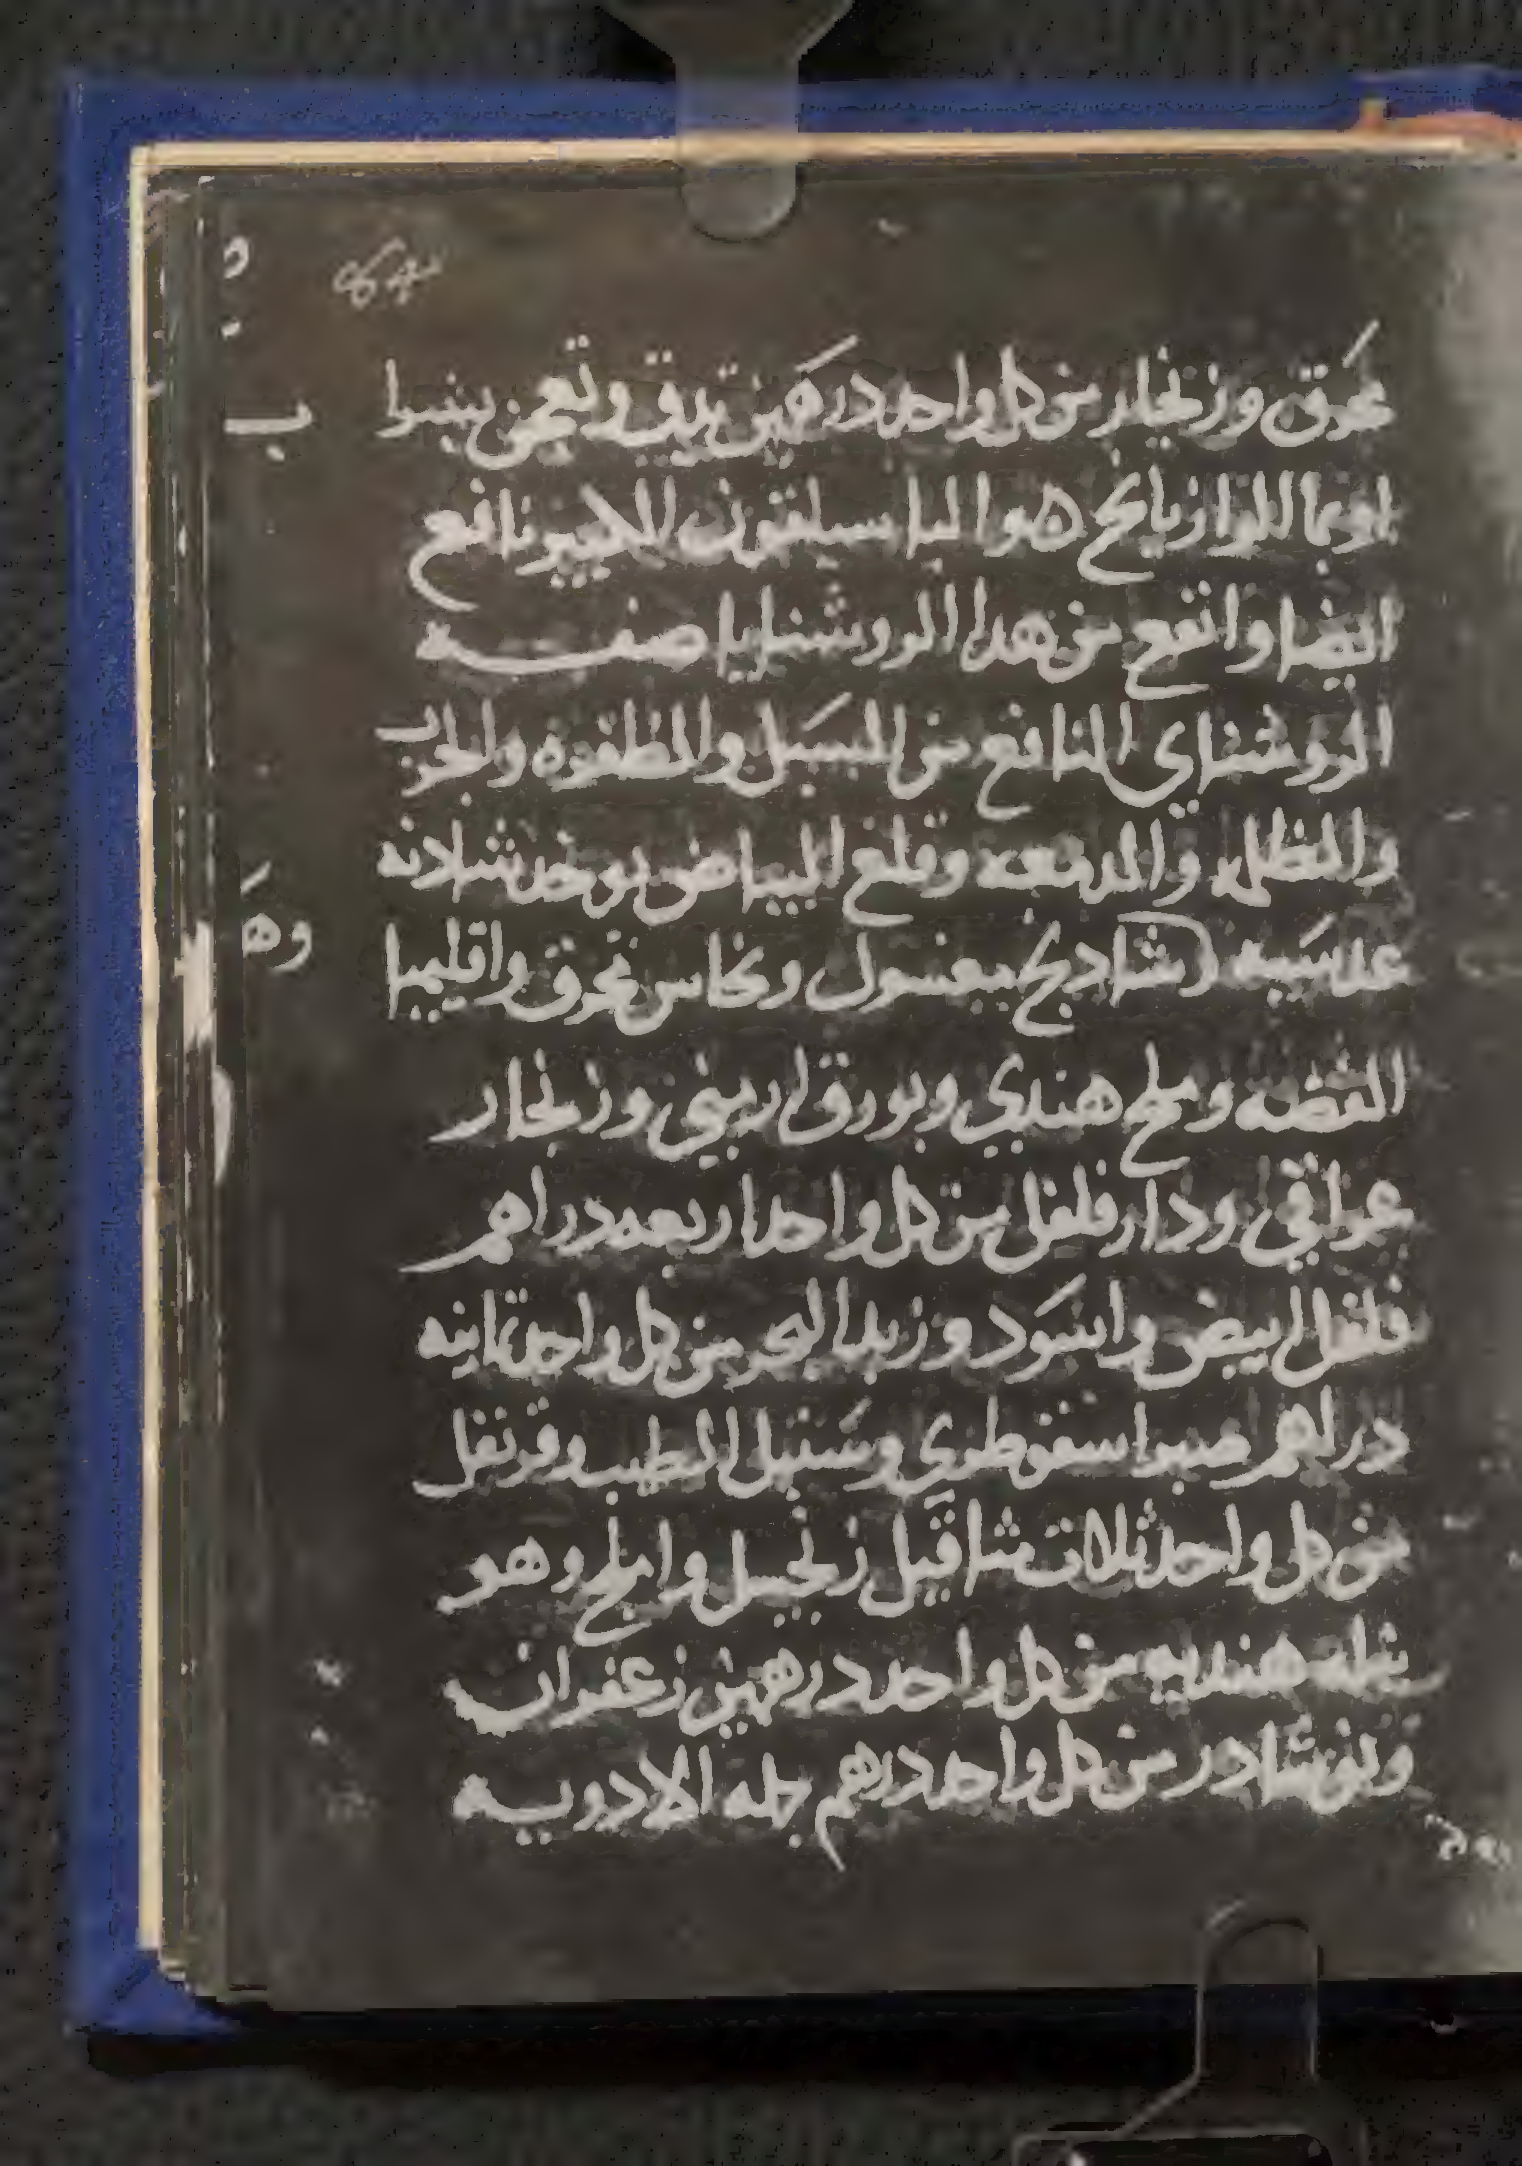 محرق وزنجار من كل واحد درهمين تدق وتعجن بشراب
او بما الرازيانج ٥ والباسليقون الكبير نافع
ايضا وانفع من هدا الروشنايا صفه
الروشناي النافع من السبل والظفره والجرب
والظلمه والدمعه وقلع البياض يوخد شادنه
عدسيه شادنج مغسول ونحاس محرق واقليميا
الفضه وملح هندي وبورق ارميني وزنجار
عراقي ودار فلفل من كل واحد اربعه دراهم
فلفل ابيض واسود وزبد البحر من كل واحد تمانيه
دراهم صبر اسقوطري وسنبل الطيب وقرنفل
من كل واحد ثلاث مثاقيل زنجبيل واملج وهو
هنديه من كل واحد درهمين زعفران
ونوشادر من كل واحد درهم جمله الادويه